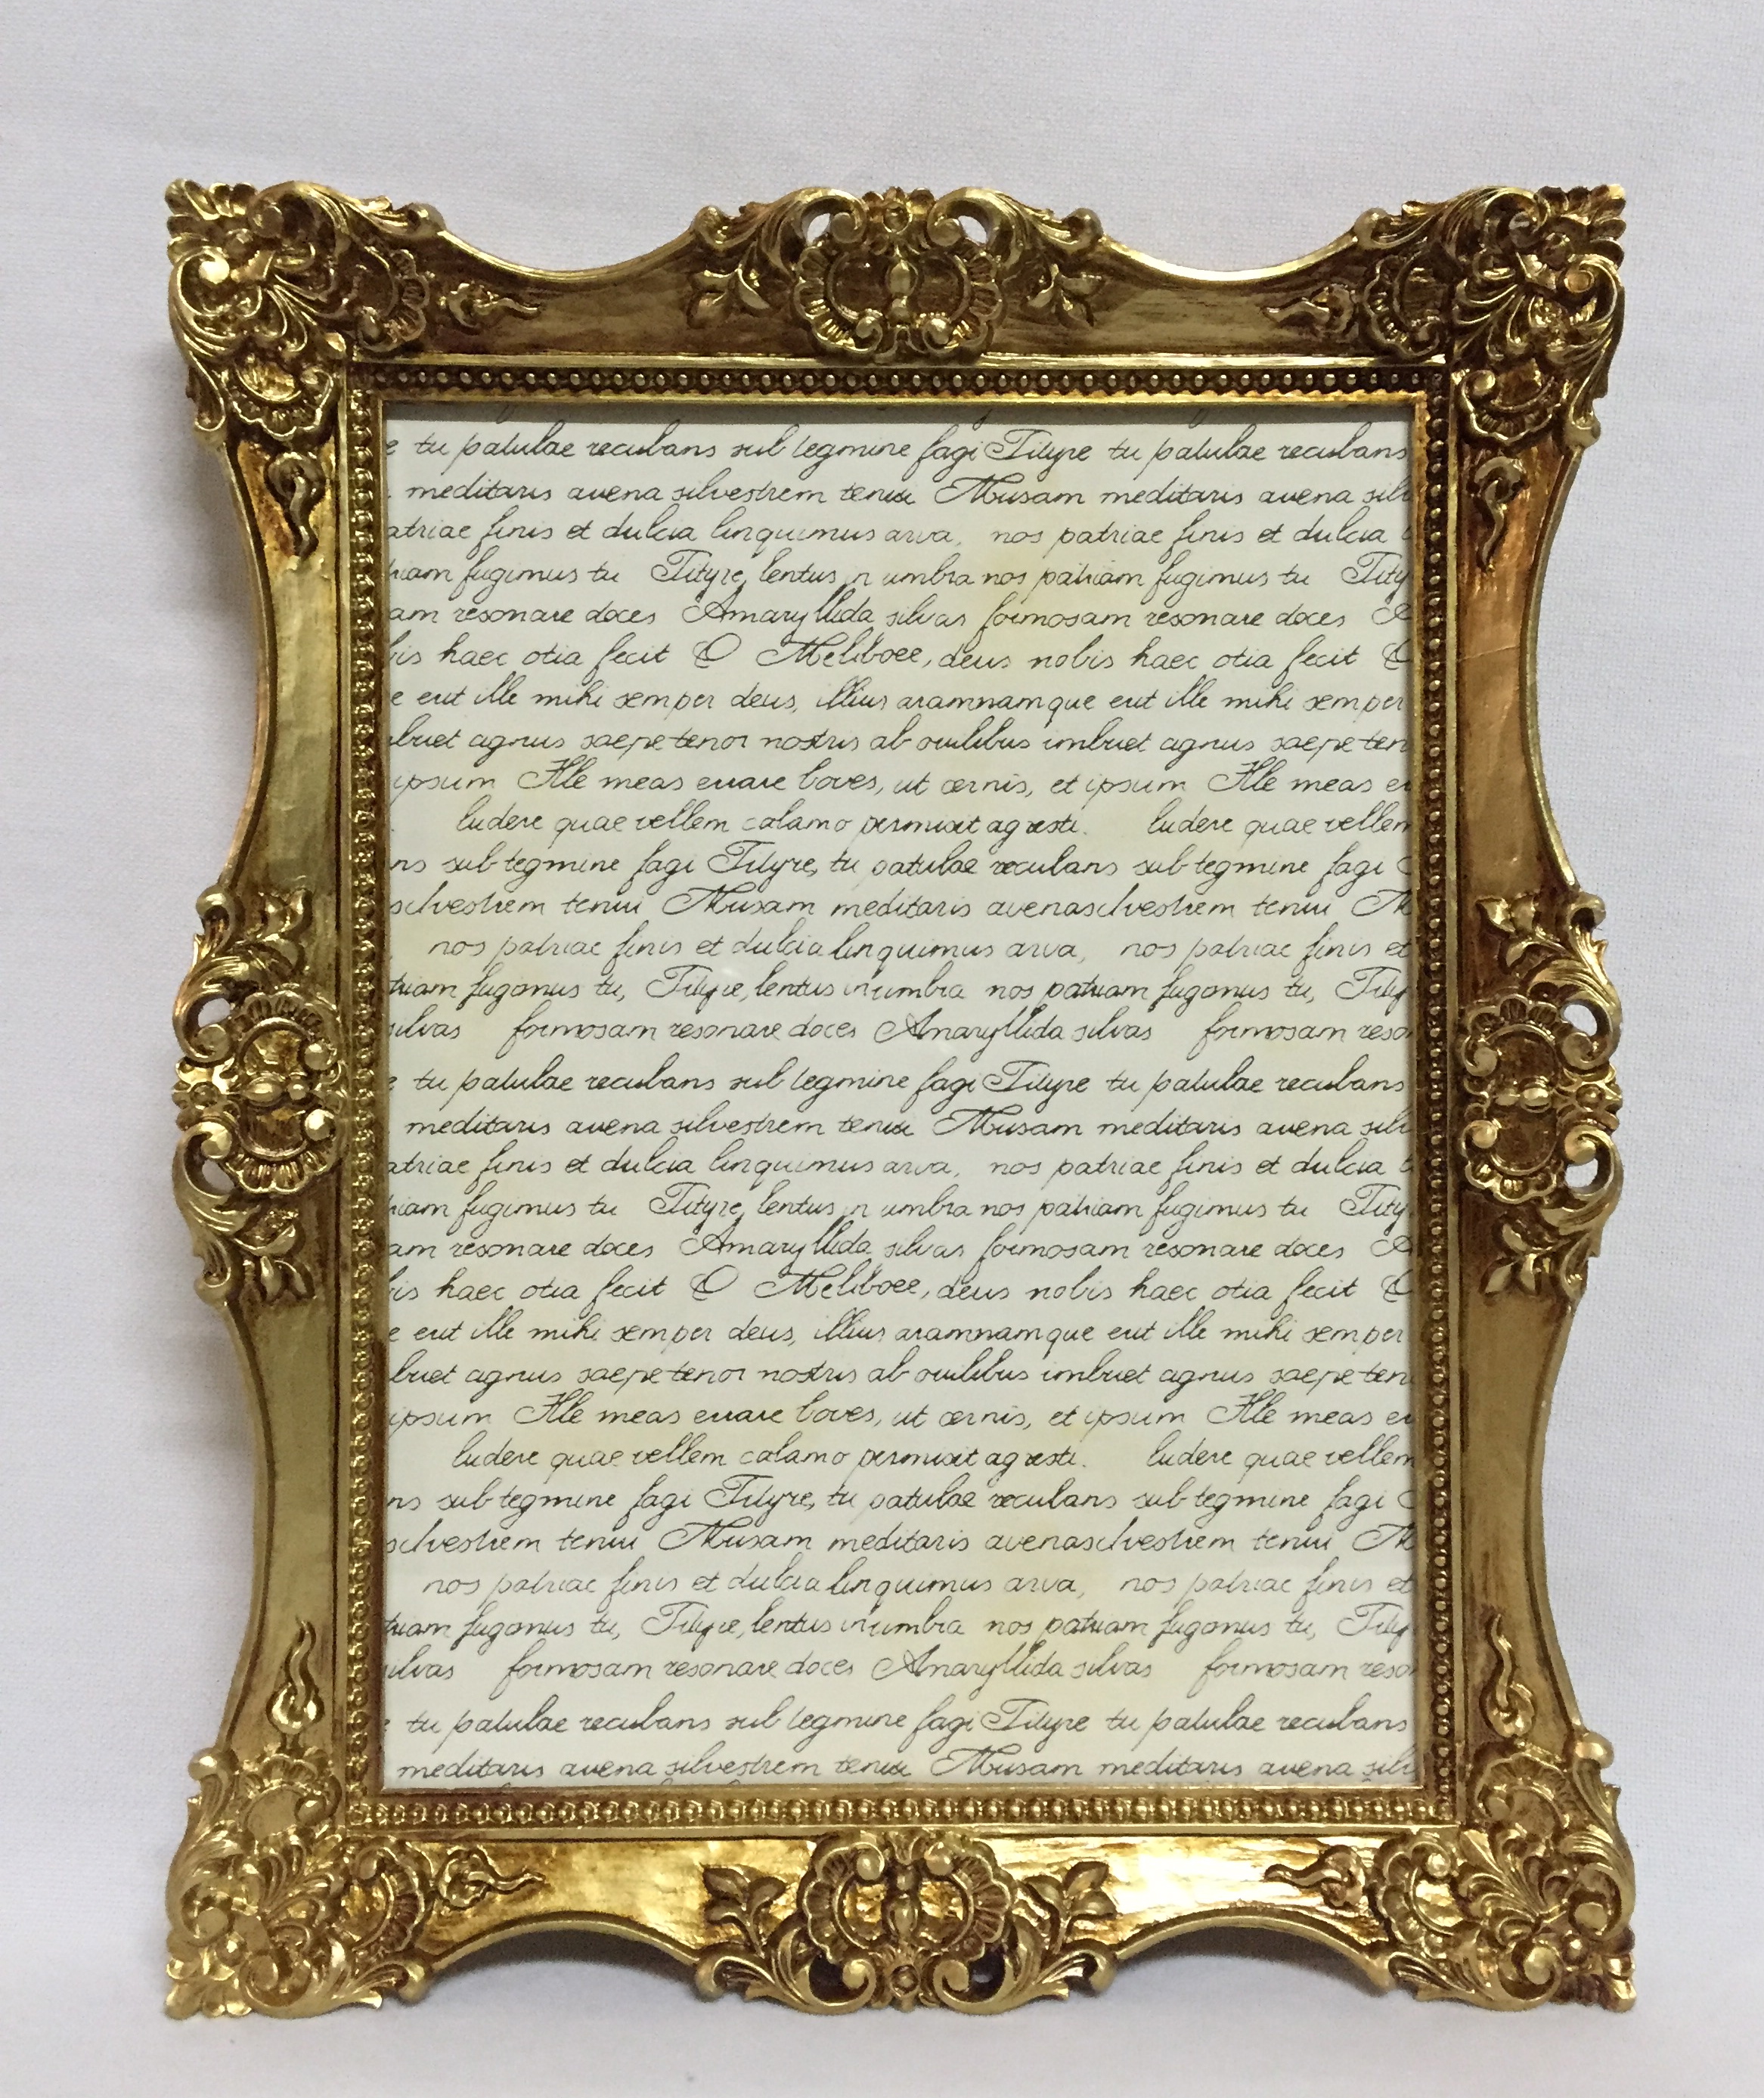 tu patulae recubans sub tegmine fagi Tityre tu patulae recubans
meditaris avena silvestrem tenui Musam meditaris avena silv
atriae finis et dulcia linquimus arva, nos patriae finis et dulcia
riam fugimus tu Tityre, lentus in umbra nos patriam fugimus tu Tity
am resonare doces Amaryllida silvas formosam resonare doces A
bis haec otia fecit O Meliboee, deus nobis haec otia fecit O
e erit ille mihi semper deus, illius aramnamque erit ille mihi semper
buet agnus saepe tener nostris ab ovilibus imbuet agnus saepe ten
ipsum Ille meas errare boves, ut cernis, et ipsum Ille meas er
ludere quae vellem calamo permisit agresti. ludere quae vellem
ns sub tegmine fagi Tityre, tu patulae recubans sub tegmine fagi
silvestrem tenui Musam meditaris avenasilvestrem tenui M
nos patriae finis et dulcia linquimus arva, nos patriae finis et
triam fugomus tu, Tityre, lentus in umbra nos patriam fugomus tu, Tity
silvas formosam resonare doces Amaryllida silvas formosam reso
tu patulae recubans sub tegmine fagi Tityre tu patulae recubans
meditaris avena silvestrem tenui Musam meditaris avena silv
atriae finis et dulcia linquimus arva, nos patriae finis et dulcia
riam fugimus tu Tityre, lentus in umbra nos patriam fugimus tu Tity
am resonare doces Amaryllida silvas formosam resonare doces A
bis haec otia fecit O Meliboee, deus nobis haec otia fecit O
e erit ille mihi semper deus, illius aramnamque erit ille mihi semper
buet agnus saepe tener nostris ab ovilibus imbuet agnus saepe ten
ipsum Ille meas errare boves, ut cernis, et ipsum Ille meas er
ludere quae vellem calamo permisit agresti. ludere quae vellem
ns sub tegmine fagi Tityre, tu patulae recubans sub tegmine fagi
silvestrem tenui Musam meditaris avenasilvestrem tenui M
nos patriae finis et dulcia linquimus arva, nos patriae finis et
triam fugomus tu, Tityre, lentus in umbra nos patriam fugomus tu, Tity
silvas formosam resonare doces Amaryllida silvas formosam reso
tu patulae recubans sub tegmine fagi Tityre tu patulae recubans
meditaris avena silvestrem tenui Musam meditaris avena silv